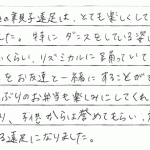 の親子遠足は、とても楽しくして
した。特にダンスをしている姿に
いくらい、リズミカルに踊っていて
をお友達と一緒にすることがで
ぶりのお弁当も楽しみにしてくれ
り、子供からは誉めてもらい、
る遠足になりました。